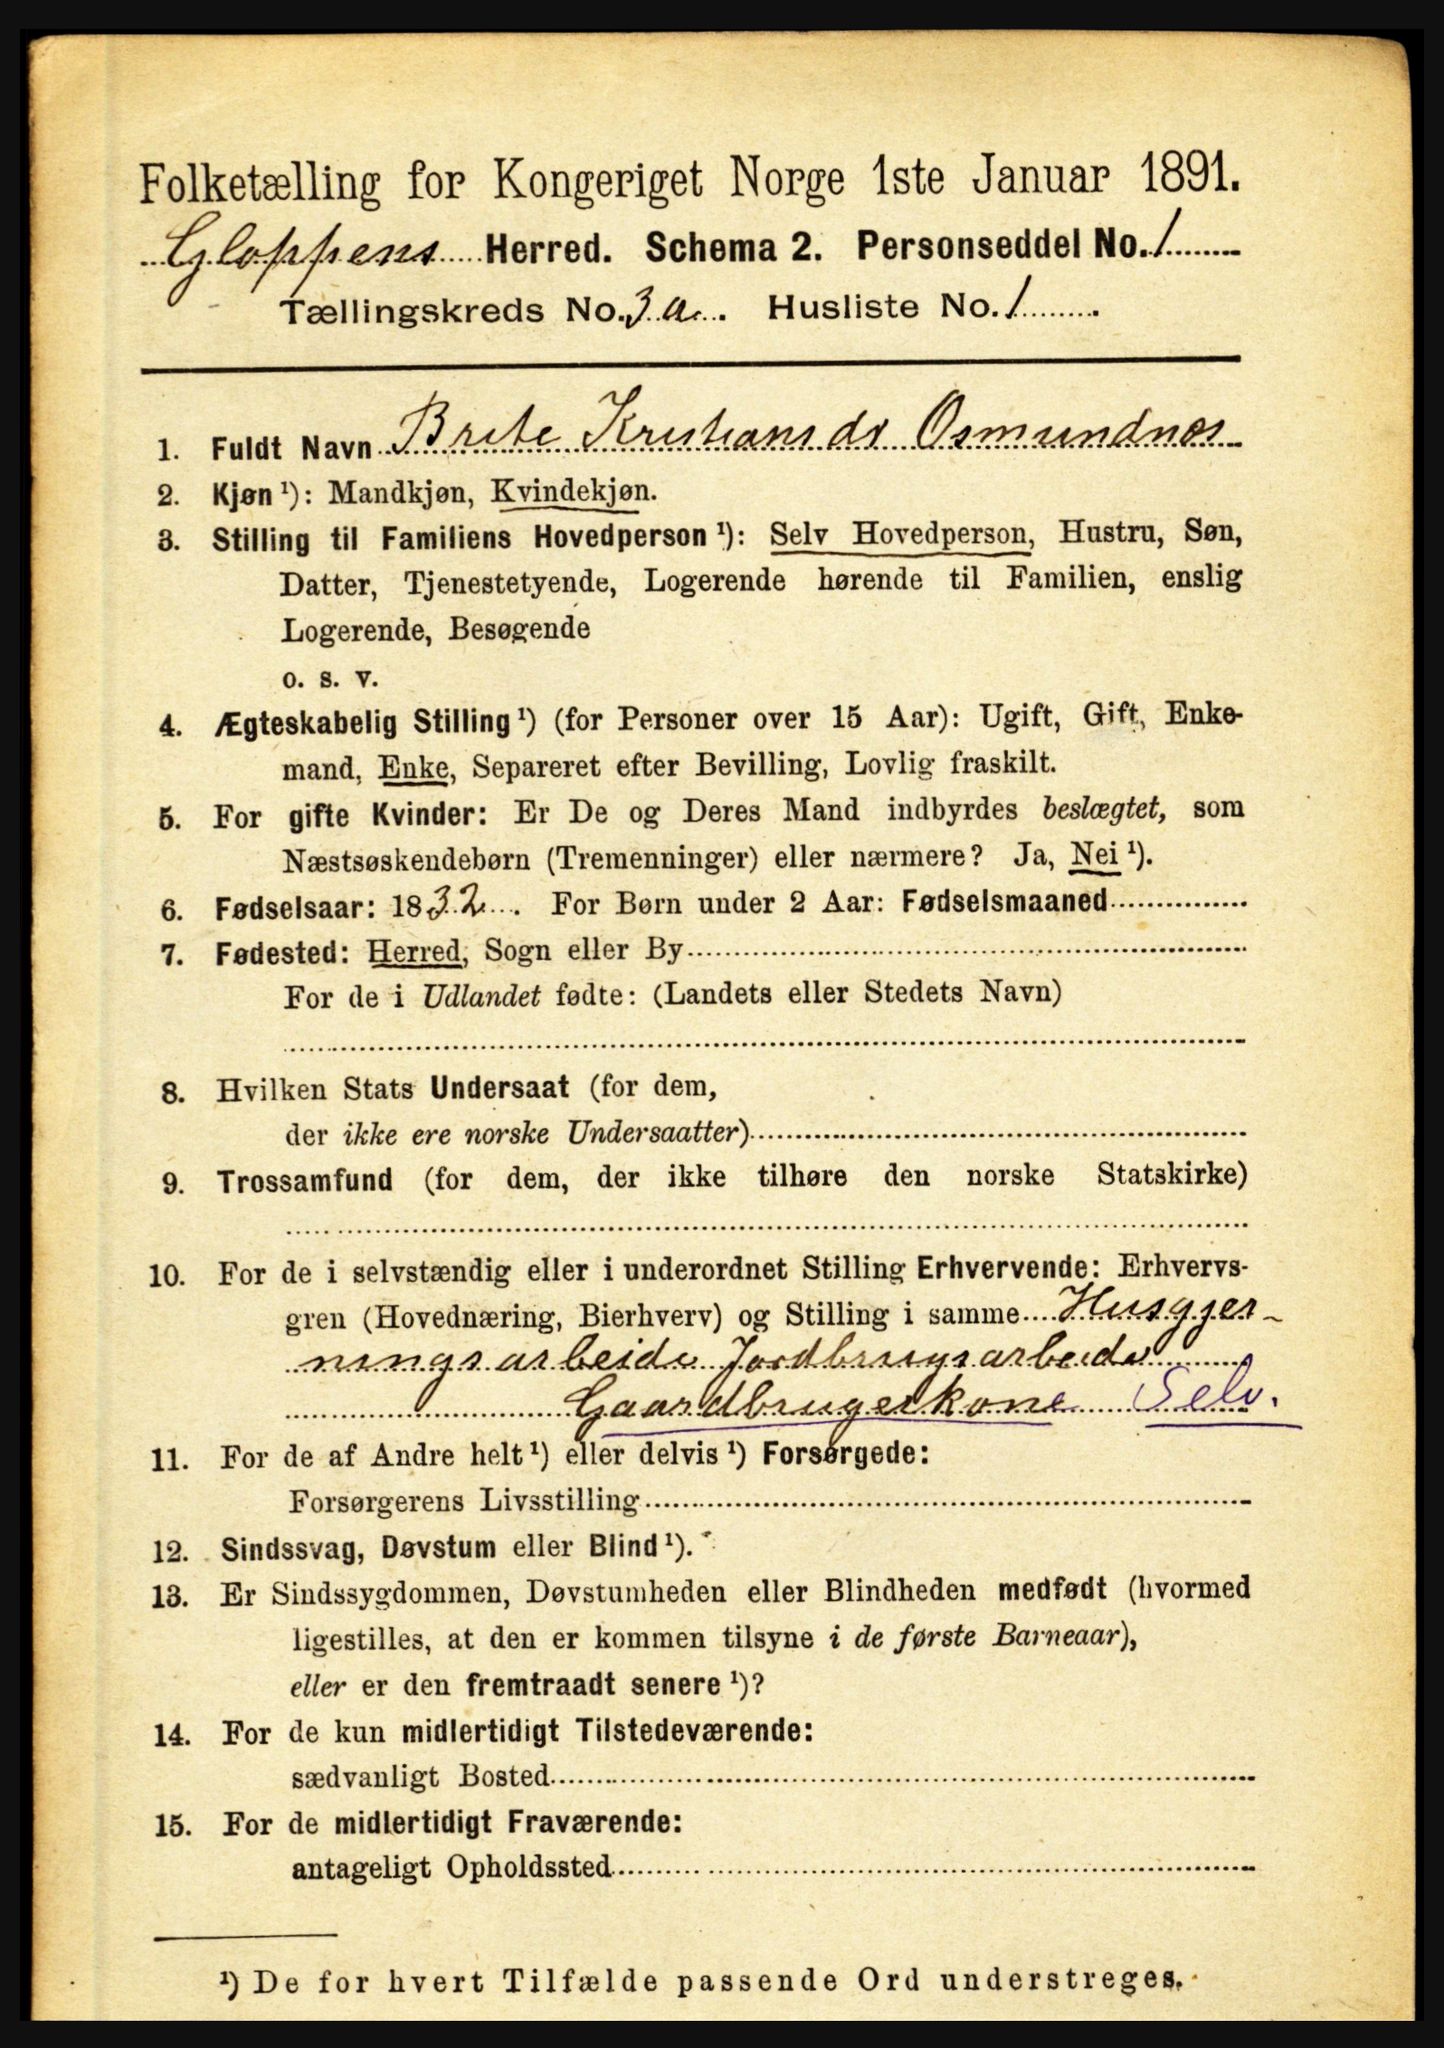 Folketælling for Kongeriget Norge 1ste Januar 1891.
Gloppens Herred. Schema 2. Personseddel No. 1
Tællingskreds No. 3 a. Husliste No. 1
1. Fuldt Navn Brite Kristiansdr Osmundnes
2. Kjøn ¹): Mandkjøn, Kvindekjøn.
3. Stilling til Familiens Hovedperson ¹): Selv Hovedperson, Hustru, Søn,
Datter, Tjenestetyende, Logerende hørende til Familien, enslig
Logerende, Besøgende
o. s. v.
4. Ægteskabelig Stilling ¹) (for Personer over 15 Aar): Ugift, Gift, Enke-
mand, Enke, Separeret efter Bevilling, Lovlig fraskilt.
5. For gifte Kvinder: Er De og Deres Mand indbyrdes beslægtet, som
Næstsøskendebørn (Tremenninger) eller nærmere? Ja, Nei ¹).
6. Fødselsaar: 1832. For Børn under 2 Aar: Fødselsmaaned
7. Fødested: Herred, Sogn eller By
For de i Udlandet fødte: (Landets eller Stedets Navn)
8. Hvilken Stats Undersaat (for dem,
der ikke ere norske Undersaatter)
9. Trossamfund (for dem, der ikke tilhøre den norske Statskirke)
10. For de i selvstændig eller i underordnet Stilling Erhvervende: Erhvervs-
gren (Hovednæring, Bierhverv) og Stilling i samme Husgjer-
ningsarbeide Jordbrugsarbeide
Gaardbrugerkone Selv.
11. For de af Andre helt ¹) eller delvis ¹) Forsørgede:
Forsørgerens Livsstilling
12. Sindssvag, Døvstum eller Blind ¹).
13. Er Sindssygdommen, Døvstumheden eller Blindheden medfødt (hvormed
ligestilles, at den er kommen tilsyne i de første Barneaar),
eller er den fremtraadt senere ¹)?
14. For de kun midlertidigt Tilstedeværende:
sædvanligt Bosted
15. For de midlertidigt Fraværende:
antageligt Opholdssted
¹) De for hvert Tilfælde passende Ord understreges.